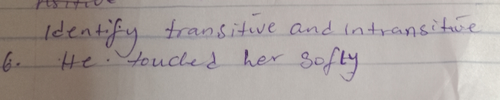 Identify transitive and intransitive
6. He. touched her softy